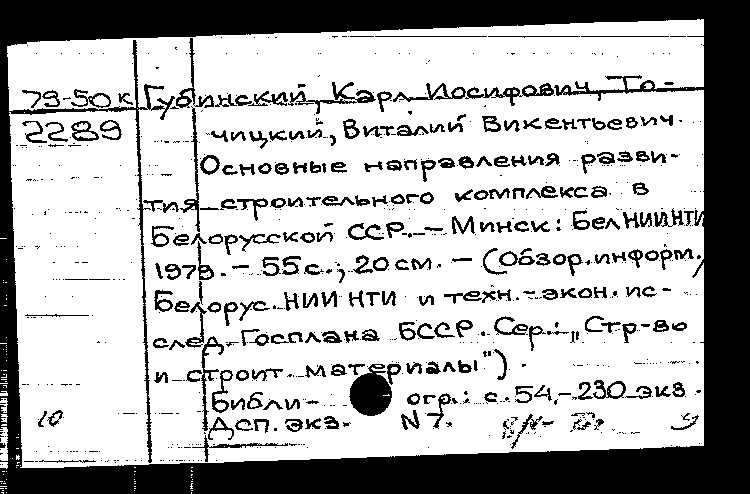 79-50к Губинский, Карл Иосифович, То-
2289 чицкий, Виталий Викентьевич.
Основные направления разви-
тия строительного комплекса в
Белорусской ССР. - Минск: БелНИИНТИ
1979. - 55 с.; 20 см. - (Обзор. информ./
Белорус. НИИ НТИ и техн.-экон. ис-
след. Госплана БССР. Сер.: „Стр-во
и строит. материалы").
Библи- огр.: с. 54, - 230 экз.
10 Дсп. экз. N 7.